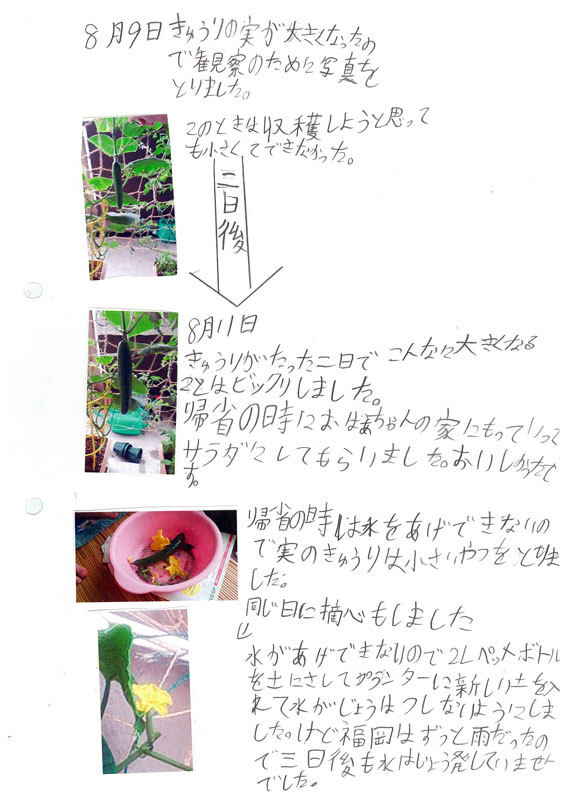 8月9日きゅうりの実が大きくなったの
で観察のために写真を
とりました。
このときは収穫しようと思って
も小さくてできなかった。
二日後
8月11日
きゅうりがたった二日でこんなに大きくなる
ことはビックリしました。
帰省の時におばあちゃんの家にもっていって
サラダにしてもらいました。おいしかったで
す。
帰省の時は水をあげできないの
で実のきゅうりは小さいやつをとりま
した。
同じ日に摘心もしました
水があげできないので2Lペットボトル
を土にさしてプランターに新しい土を入
れて水がじょうはつしないようにしま
した。けど福岡はずっと雨だったの
で三日後も水はじょう発していませ
んでした。